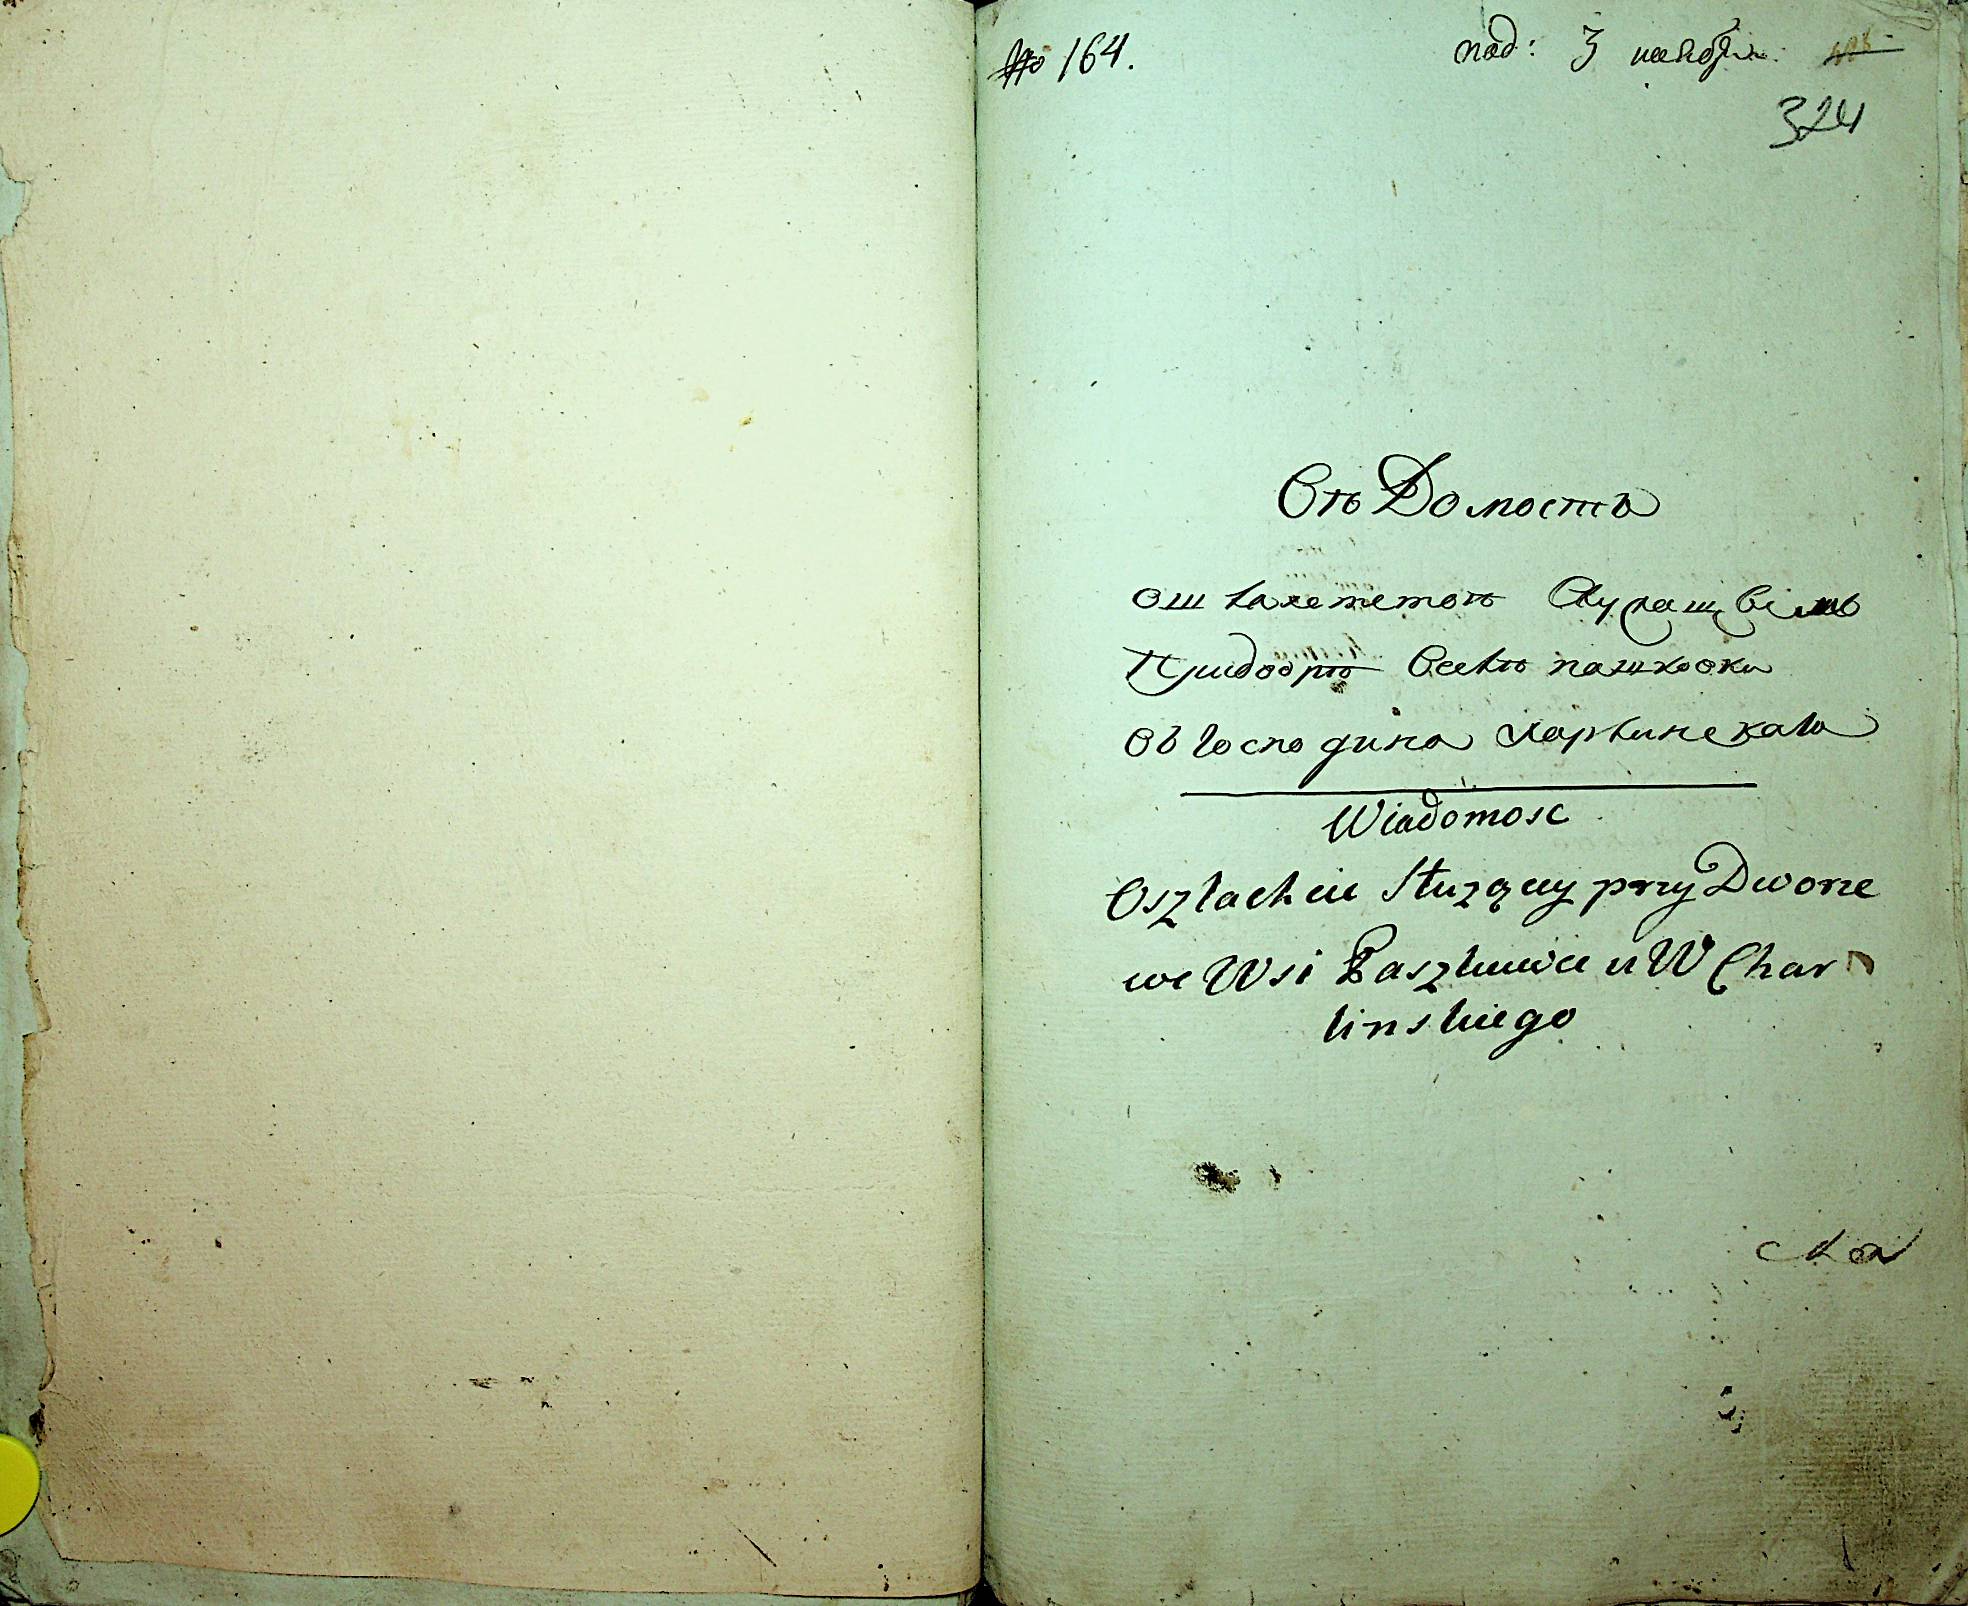 No 164.
под: 3 ноября:
324
Въдомость
о шляхететвъ Служащвімъ
Придворъ Селъ пашковки
ов господина Харлинскаго
Wiadomosc
O szlachcie Służącey przy Dworze
we Wsi Paszkuwce u W Char
linskiego